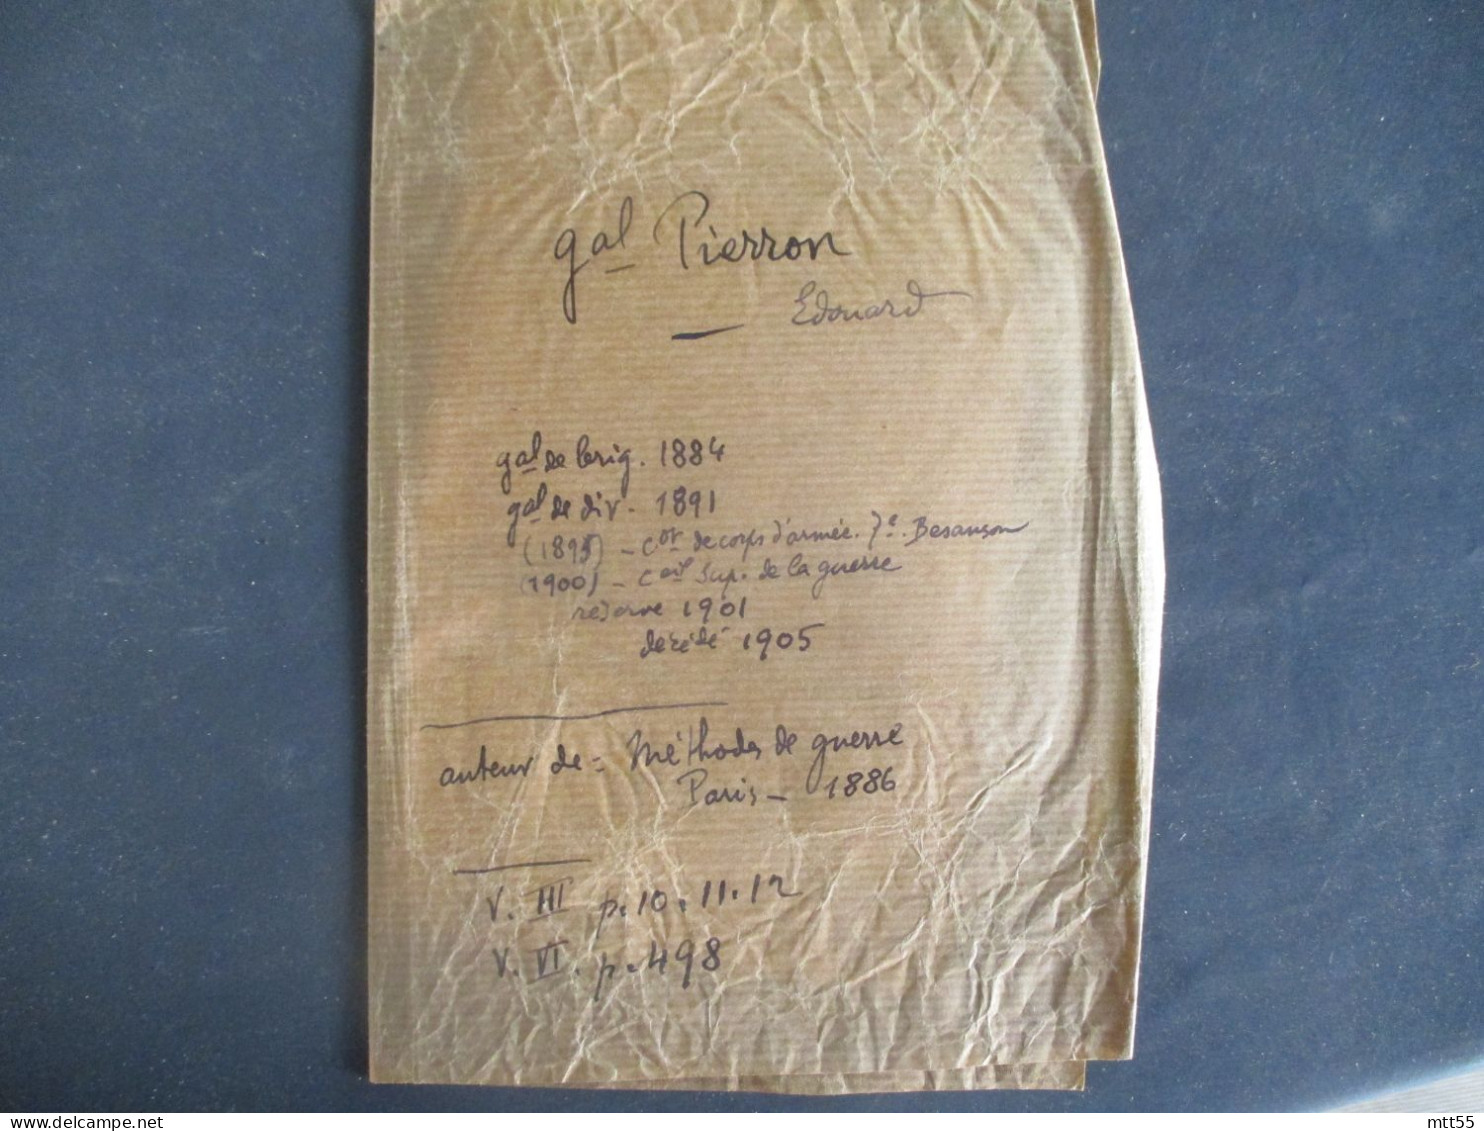 gal Pierron
Edouard
gal de brig. 1884
gal de div. 1891
(1895) - Cor de corps d'armée. 7e. Besançon
(1900) - Ceil Sup. de la guerre
réserve 1901
décédé 1905
auteur de = Méthodes de guerre
Paris - 1886
V. III p. 10. 11. 12
V. VI. p. 498
delcampe.net
mtt55